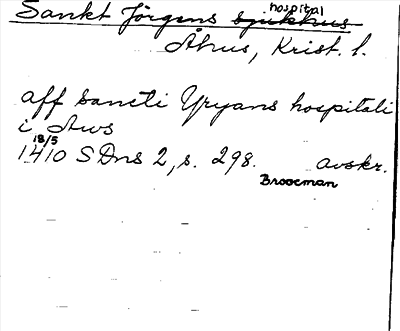 hospital
Sankt Jörgens sjukhus
Åhus, Krist. l.
aff sancti Yryans hospitali
i Aws
18/5
1410 SDns 2, s. 298. avskr.
Brooeman